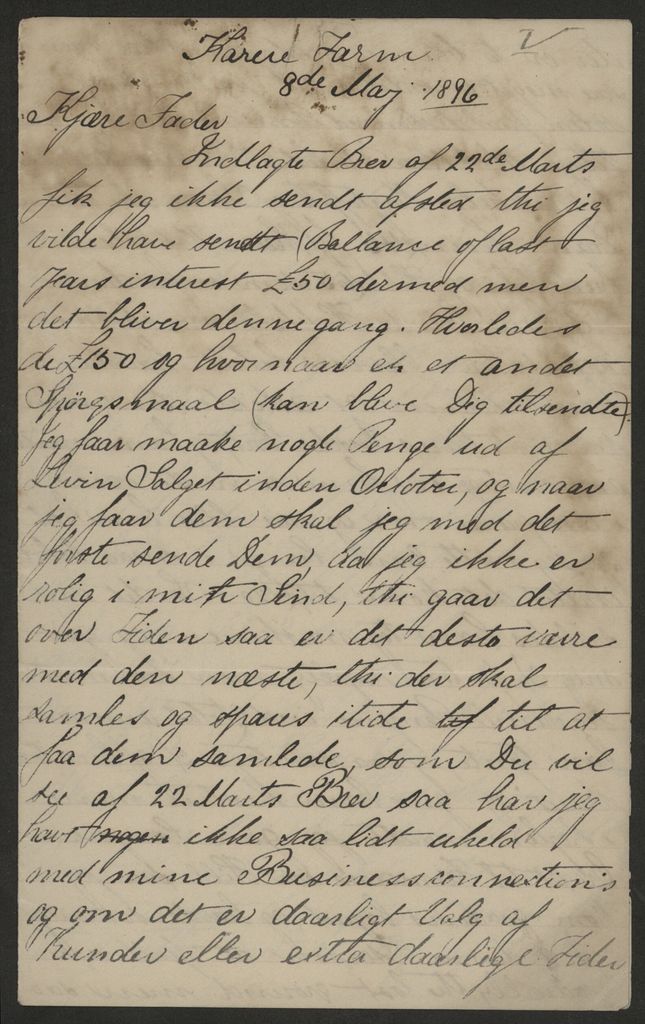 V
Karere Farm
8de Maj 1896
Kjære Fader
Indlagte Brev af 22de Marts
fik jeg ikke sendt afsted thi jeg
vilde have sendt (Ballance of last
Years interest £50 dermed men
det bliver denne gang. Hvorledes
de £150 og hvornaar er et andet
Spörgsmaal (kan blive Dig tilsendte).
Jeg faar maake nogle Penge ud af
Levin Salget inden October, og naar
jeg faar dem skal jeg med det
förste sende Dem, da jeg ikke er
rolig i mit Sind, thi gaar det
over Tiden saa er det desto værre
med den næste, thi der skal
samles og spares itide til at
faa dem samlede, som Du vil
see af 22 Marts Brev saa har jeg
havt nogen ikke saa lidt uheld
med mine Businessconnextion's
og om det er daarligt Valg af
Kunder eller extra daarlige Tider